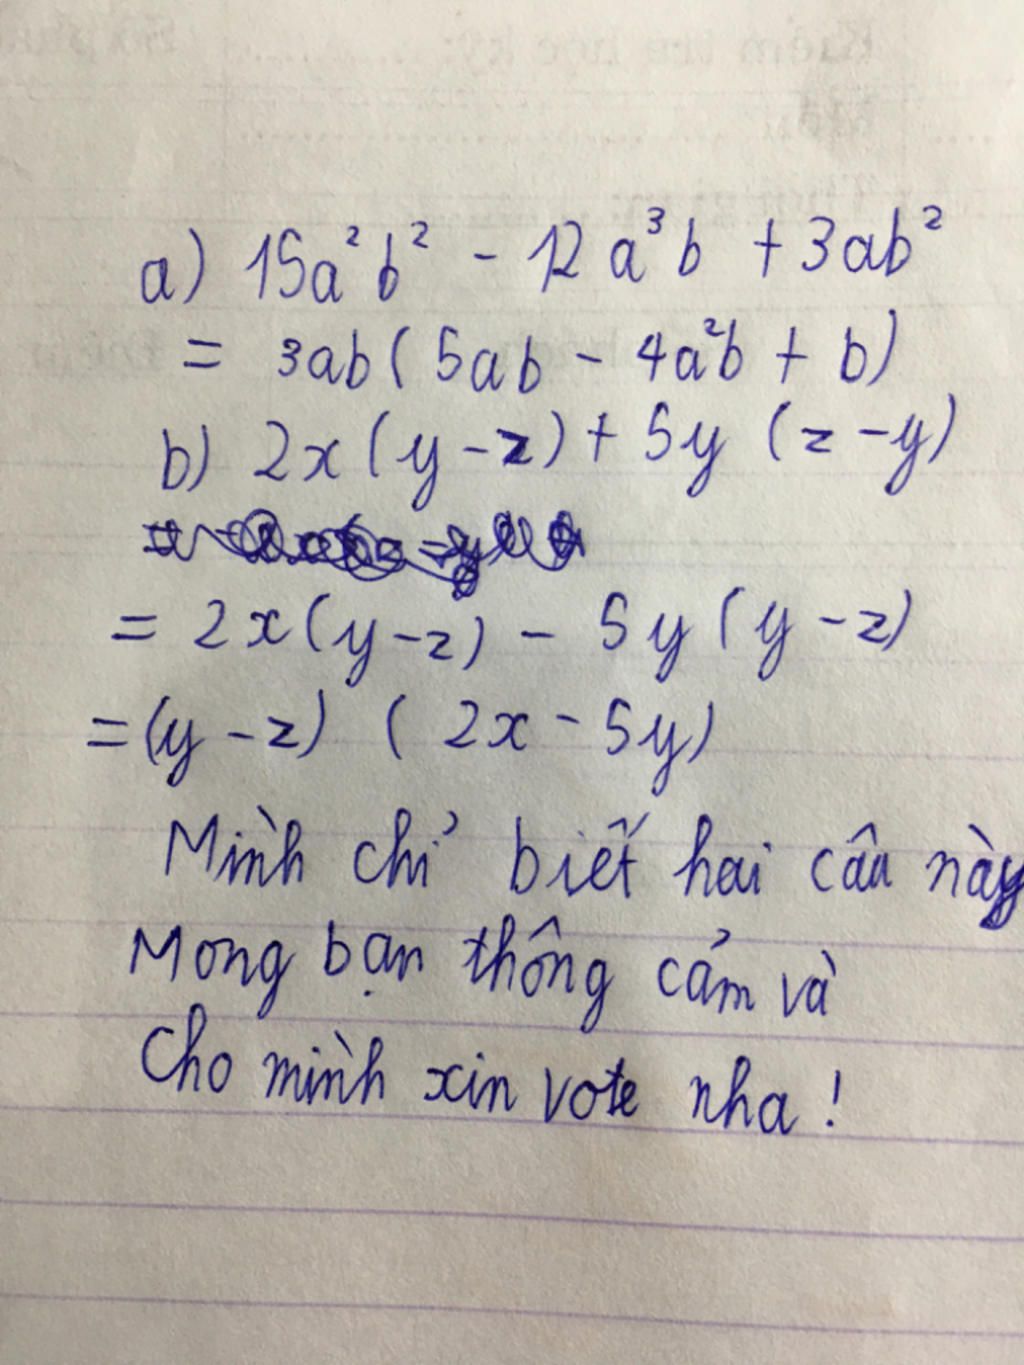 a) 15a²b² - 12a³b + 3ab²
= 3ab(5ab - 4a²b + b)
b) 2x(y-z)+5y(z-y)
= 2x(y-z) - 5y(y-z)
=(y-z) (2x-5y)
Mình chỉ biết hai câu này
Mong bạn thông cảm và
Cho mình xin vote nha!